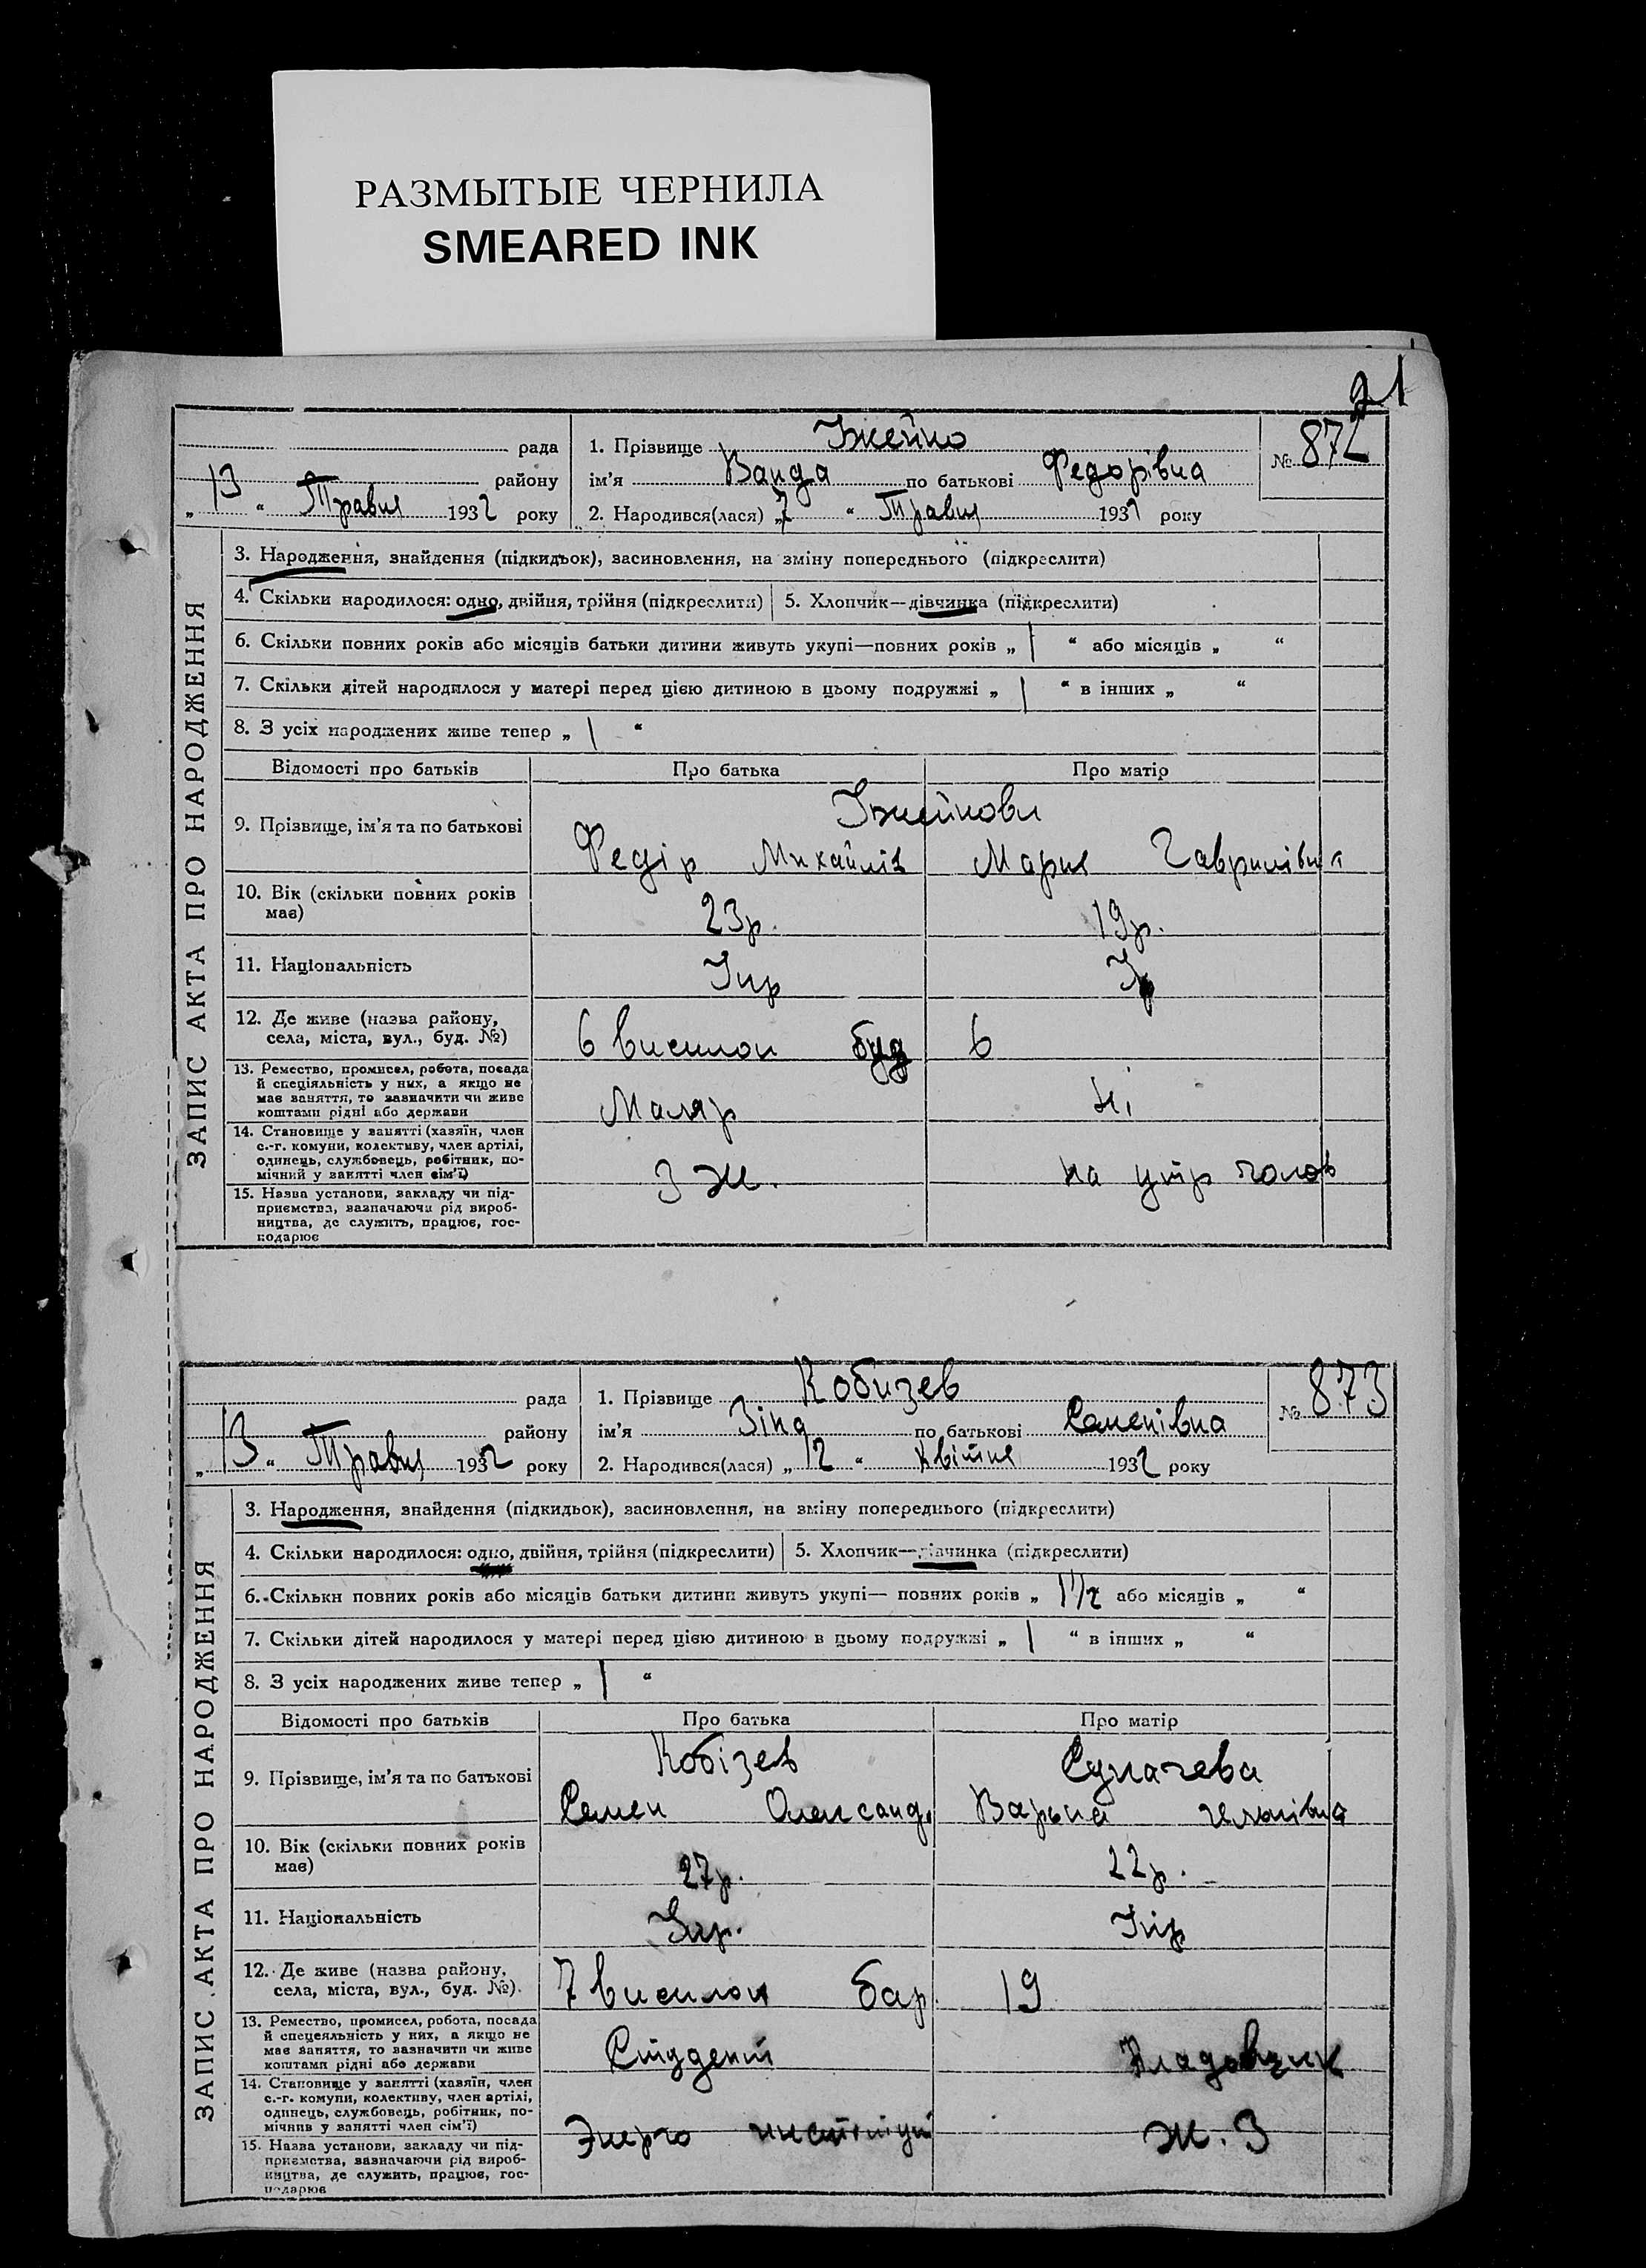 РАЗМЫТЫЕ ЧЕРНИЛА
SMEARED INK
21
рада
1. Прізвище Їжейко
№ 872
району
ім'я Ванда по батькові Федорівна
„13“ Травня 1932 року
2. Народився(лася) „7“ Травня 1932 року
ЗАПИС АКТА ПРО НАРОДЖЕННЯ
3. Народження, знайдення (підкидьок), засиновлення, на зміну попереднього (підкреслити)
4. Скільки народилося: одно, двійня, трійня (підкреслити) 5. Хлопчик—дівчинка (підкреслити)
6. Скільки повних років або місяців батьки дитини живуть укупі—повних років „ 1 “ або місяців „ “
7. Скільки дітей народилося у матері перед цією дитиною в цьому подружжі „ 1 “ в інших „ “
8. З усіх народжених живе тепер „ 1 “
Відомості про батьків Про батька Про матір
9. Прізвище, ім'я та по батькові
Федір Михайлів Мария Гаврилівна
10. Вік (скільки повних років
має)
23р. 19р.
11. Національність Укр
12. Де живе (назва району,
села, міста, вул., буд. №)
6 висилок буд 6
13. Ремество, промисел, робота, посада
й спеціяльність у них, а якщо не
має заняття, то зазначити чи живе
коштами рідні або держави
Маляр Ні
14. Становище у занятті (хазяїн, член
с.-г. комуни, колективу, член артілі,
одинець, службовець, робітник, по-
мічний у занятті член сім'ї)
З Ж. на утр голов
15. Назва установи, закладу чи під-
приємства, зазначаючи рід вироб-
ництва, де служить, працює, гос-
подарює
рада
1. Прізвище Кобизев
№ 873
району
ім'я Зіна по батькові Семенівна
„13“ Травня 1932 року
2. Народився(лася) „12“ Квітня 1932 року
ЗАПИС АКТА ПРО НАРОДЖЕННЯ
3. Народження, знайдення (підкидьок), засиновлення, на зміну попереднього (підкреслити)
4. Скільки народилося: одно, двійня, трійня (підкреслити) 5. Хлопчик—дівчинка (підкреслити)
6. Скільки повних років або місяців батьки дитини живуть укупі— повних років „ 1 1/2 або місяців „ “
7. Скільки дітей народилося у матері перед цією дитиною в цьому подружжі „ 1 “ в інших „ “
8. З усіх народжених живе тепер „ 1 “
Відомості про батьків Про батька Про матір
Кобізев
9. Прізвище, ім'я та по батькові
Семен Олександ.
10. Вік (скільки повних років
має)
27р. 22р.
11. Національність Укр. Укр
12. Де живе (назва району,
села, міста, вул., буд. №).
7 висилок бар. 19
13. Ремество, промисел, робота, посада
й спецеяльність у них, а якщо не
має заняття, то зазначити чи живе
коштами рідні або держави
Студент Кладовщик
14. Становище у занятті (хазяїн, член
с.-г. комуни, колективу, член артілі,
одинець, службовець, робітник, по-
мічний у занятті член сім'ї)
Энерго институт Ж. З
15. Назва установи, закладу чи під-
приємства, зазначаючи рід вироб-
ництва, де служить, працює, гос-
подарює